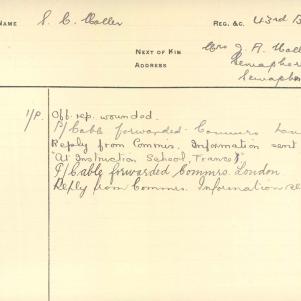 NAME S. C. Waller REG. &C. 43rd B
NEXT OF KIN Mrs J. A. Wall
ADDRESS Semaphor
Semaphor
1/P. Off. rep. wounded.
P/ Cable forwarded Commrs Lon
Reply from Commrs. Information sent
"At Instruction School, France".
P/ Cable forwarded Commrs. London
Reply from Commrs. Information re